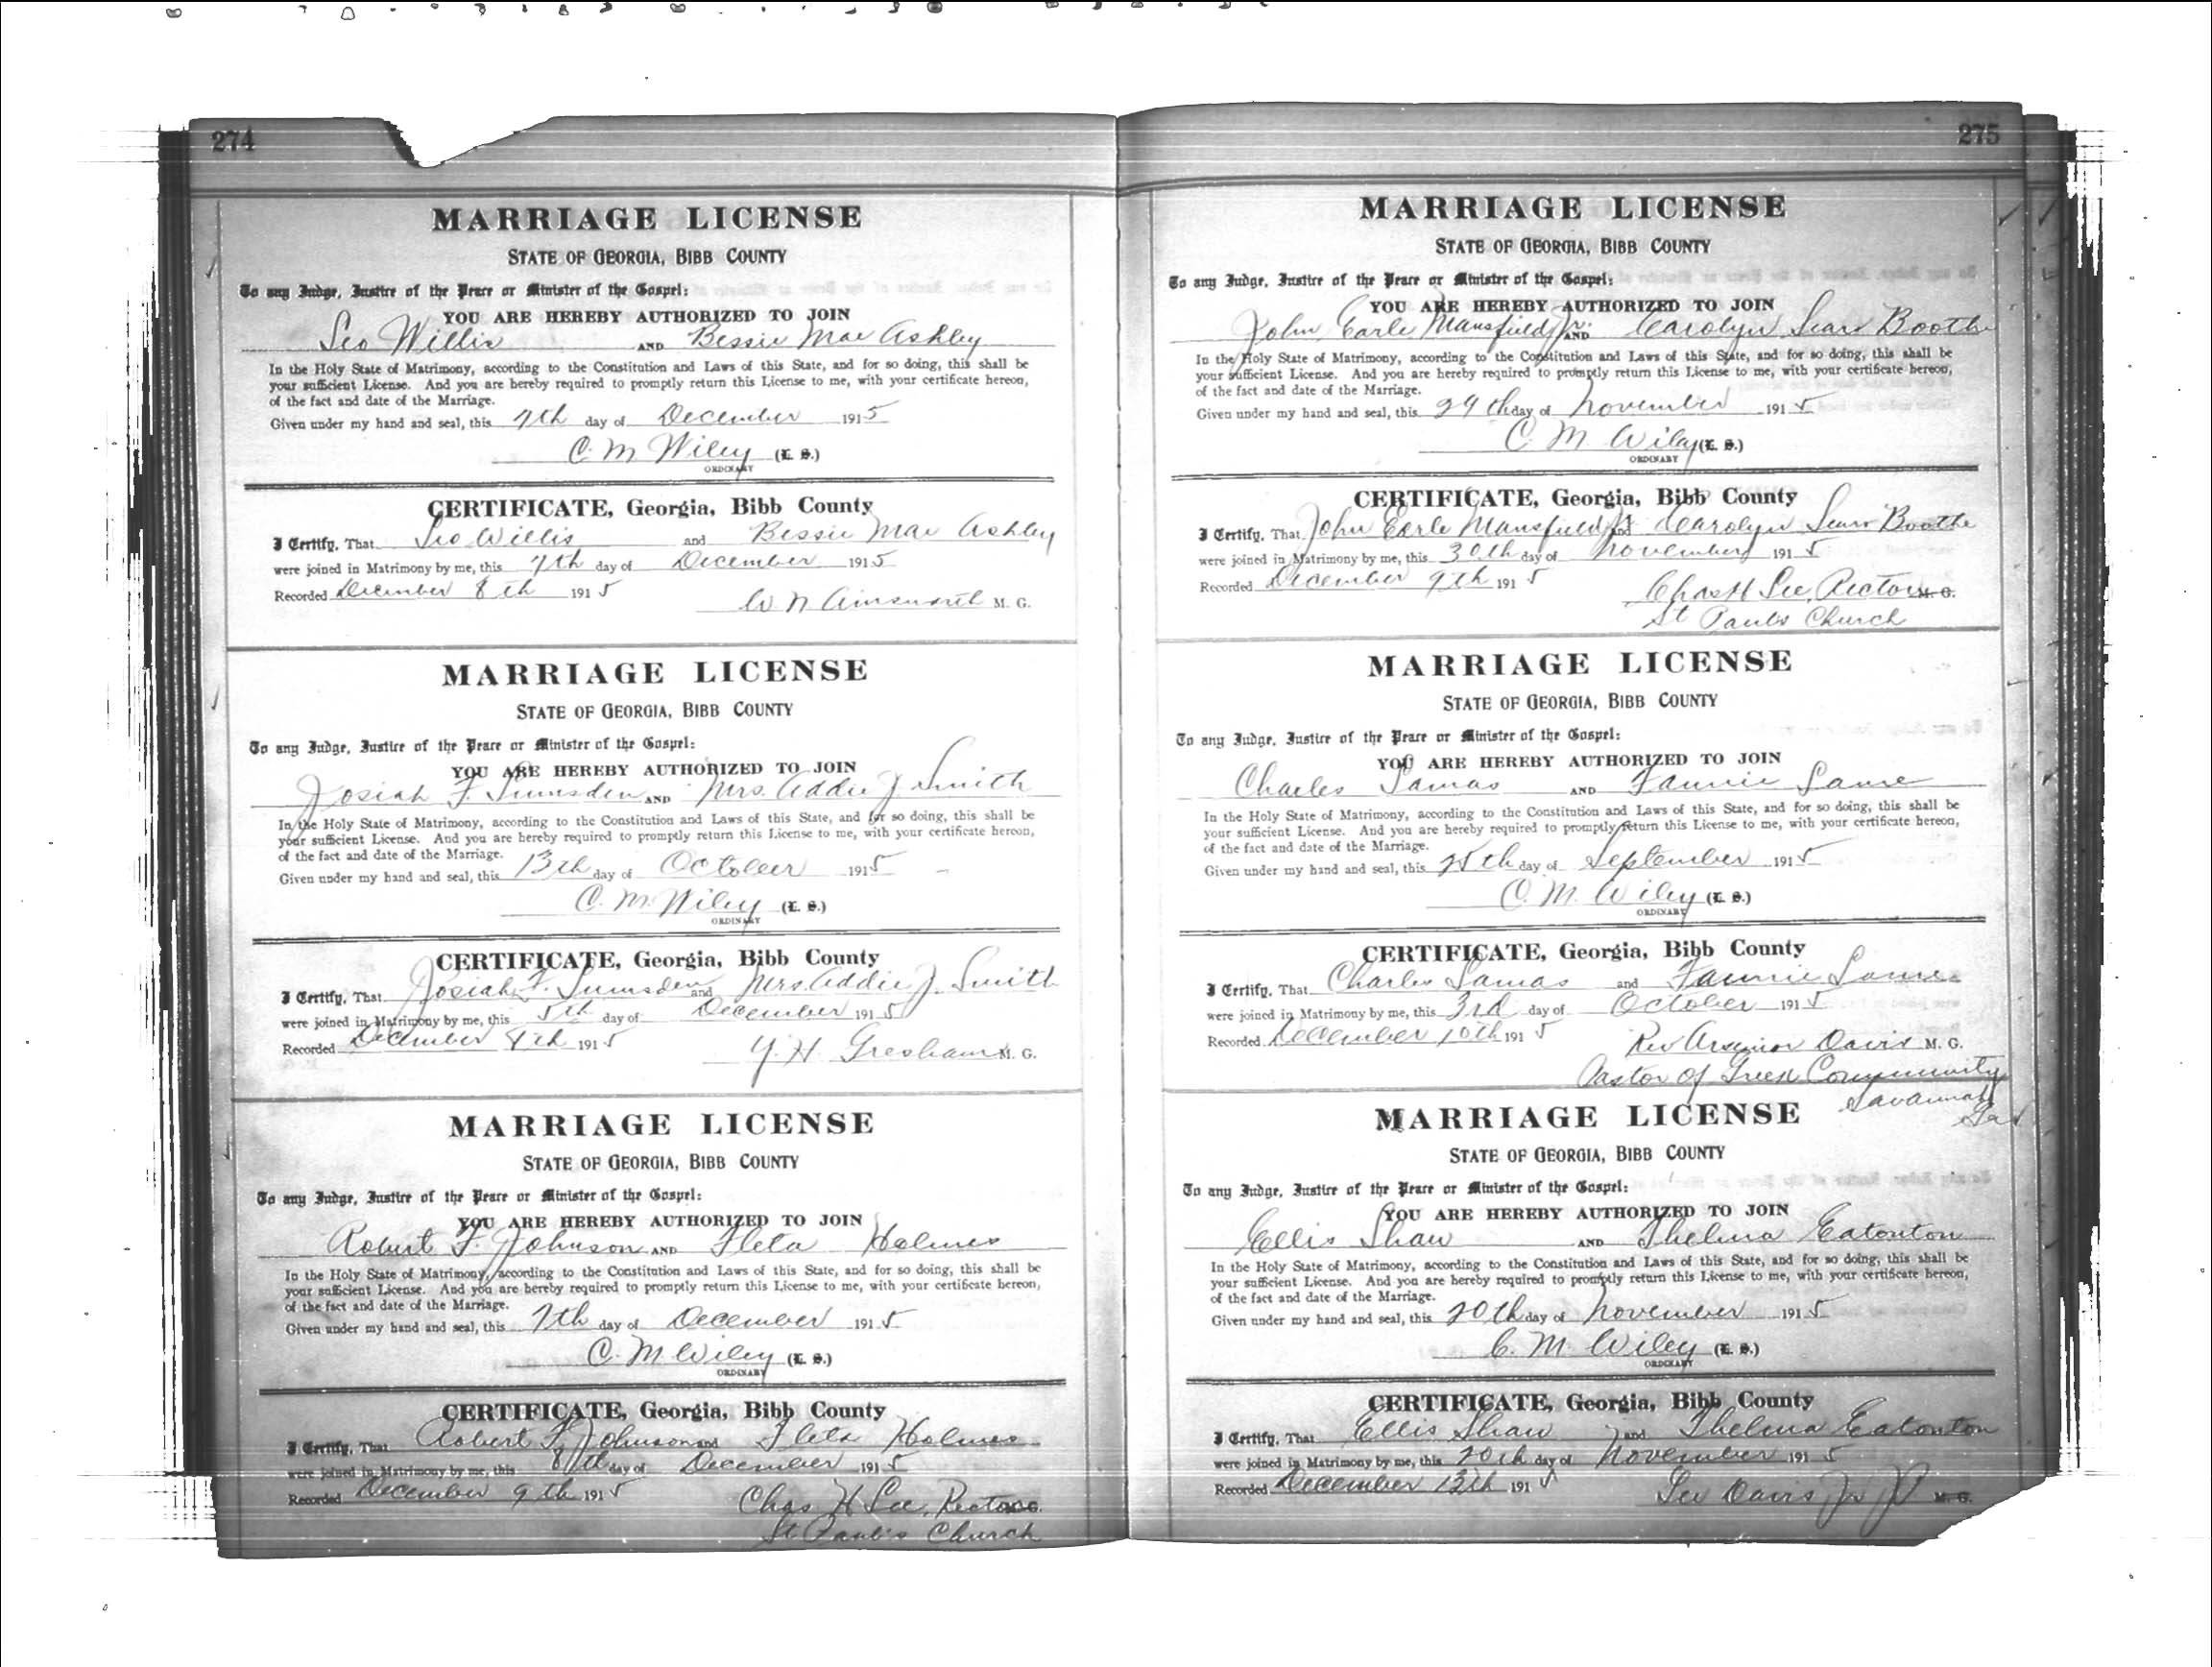 274
MARRIAGE LICENSE
STATE OF GEORGIA, BIBB COUNTY
To any Judge, Justice of the Peace or Minister of the Gospel:
YOU ARE HEREBY AUTHORIZED TO JOIN
Leo Willis AND Bessie Mae Ashley
In the Holy State of Matrimony, according to the Constitution and Laws of this State, and for so doing, this shall be
your sufficient License. And you are hereby required to promptly return this License to me, with your certificate hereon,
of the fact and date of the Marriage.
Given under my hand and seal, this 7th day of December 1915
C. M. Wiley (L. S.)
ORDINARY
CERTIFICATE, Georgia, Bibb County
I Certify, That Leo Willis and Bessie Mae Ashley
were joined in Matrimony by me, this 7th day of December 1915
Recorded December 8th 1915
W N Ainsworth M. G.
MARRIAGE LICENSE
STATE OF GEORGIA, BIBB COUNTY
To any Judge, Justice of the Peace or Minister of the Gospel:
YOU ARE HEREBY AUTHORIZED TO JOIN
Josiah F. Lumsden AND Mrs. Addie J. Smith
In the Holy State of Matrimony, according to the Constitution and Laws of this State, and for so doing, this shall be
your sufficient License. And you are hereby required to promptly return this License to me, with your certificate hereon,
of the fact and date of the Marriage.
Given under my hand and seal, this 13th day of October 1915
C. M. Wiley (L. S.)
ORDINARY
CERTIFICATE, Georgia, Bibb County
I Certify, That Josiah F. Lumsden and Mrs. Addie J. Smith
were joined in Matrimony by me, this 5th day of December 1915
Recorded December 8th 1915
Gresham M. G.
MARRIAGE LICENSE
STATE OF GEORGIA, BIBB COUNTY
To any Judge, Justice of the Peace or Minister of the Gospel:
YOU ARE HEREBY AUTHORIZED TO JOIN
Robert F. Johnson AND Fleta Holmes
In the Holy State of Matrimony, according to the Constitution and Laws of this State, and for so doing, this shall be
your sufficient License. And you are hereby required to promptly return this License to me, with your certificate hereon,
of the fact and date of the Marriage.
Given under my hand and seal, this 7th day of December 1915
C. M. Wiley (L. S.)
ORDINARY
CERTIFICATE, Georgia, Bibb County
I Certify, That Robert F. Johnson and Fleta Holmes
were joined in Matrimony by me, this day of December 1915
Recorded December 9th 1915
Chas H Lee, Rector M. G.
St Paul's Church
275
MARRIAGE LICENSE
STATE OF GEORGIA, BIBB COUNTY
To any Judge, Justice of the Peace or Minister of the Gospel:
YOU ARE HEREBY AUTHORIZED TO JOIN
John Earle Mansfield Jr. AND Carolyn Sears Boothe
In the Holy State of Matrimony, according to the Constitution and Laws of this State, and for so doing, this shall be
your sufficient License. And you are hereby required to promptly return this License to me, with your certificate hereon,
of the fact and date of the Marriage.
Given under my hand and seal, this 29th day of November 1915
C. M. Wiley (L. S.)
ORDINARY
CERTIFICATE, Georgia, Bibb County
I Certify, That John Earle Mansfield Jr and Carolyn Sears Boothe
were joined in Matrimony by me, this 30th day of November 1915
Recorded December 9th 1915
Chas H Lee, Rector M. G.
St Paul's Church
MARRIAGE LICENSE
STATE OF GEORGIA, BIBB COUNTY
To any Judge, Justice of the Peace or Minister of the Gospel:
YOU ARE HEREBY AUTHORIZED TO JOIN
Charles Lamas AND Fannie Lame
In the Holy State of Matrimony, according to the Constitution and Laws of this State, and for so doing, this shall be
your sufficient License. And you are hereby required to promptly return this License to me, with your certificate hereon,
of the fact and date of the Marriage.
Given under my hand and seal, this 25th day of September 1915
C. M. Wiley (L. S.)
ORDINARY
CERTIFICATE, Georgia, Bibb County
I Certify, That Charles Lamas and Fannie Lame
were joined in Matrimony by me, this 3rd day of October 1915
Recorded December 10th 1915
Rev Arsenios Davis M. G.
Pastor of Greek Community
Savannah
Ga
MARRIAGE LICENSE
STATE OF GEORGIA, BIBB COUNTY
To any Judge, Justice of the Peace or Minister of the Gospel:
YOU ARE HEREBY AUTHORIZED TO JOIN
Ellis Shaw AND Thelma Eatonton
In the Holy State of Matrimony, according to the Constitution and Laws of this State, and for so doing, this shall be
your sufficient License. And you are hereby required to promptly return this License to me, with your certificate hereon,
of the fact and date of the Marriage.
Given under my hand and seal, this 20th day of November 1915
C. M. Wiley (L. S.)
ORDINARY
CERTIFICATE, Georgia, Bibb County
I Certify, That Ellis Shaw and Thelma Eatonton
were joined in Matrimony by me, this 20th day of November 1915
Recorded December 13th 1915
Davis Jr JP M. G.